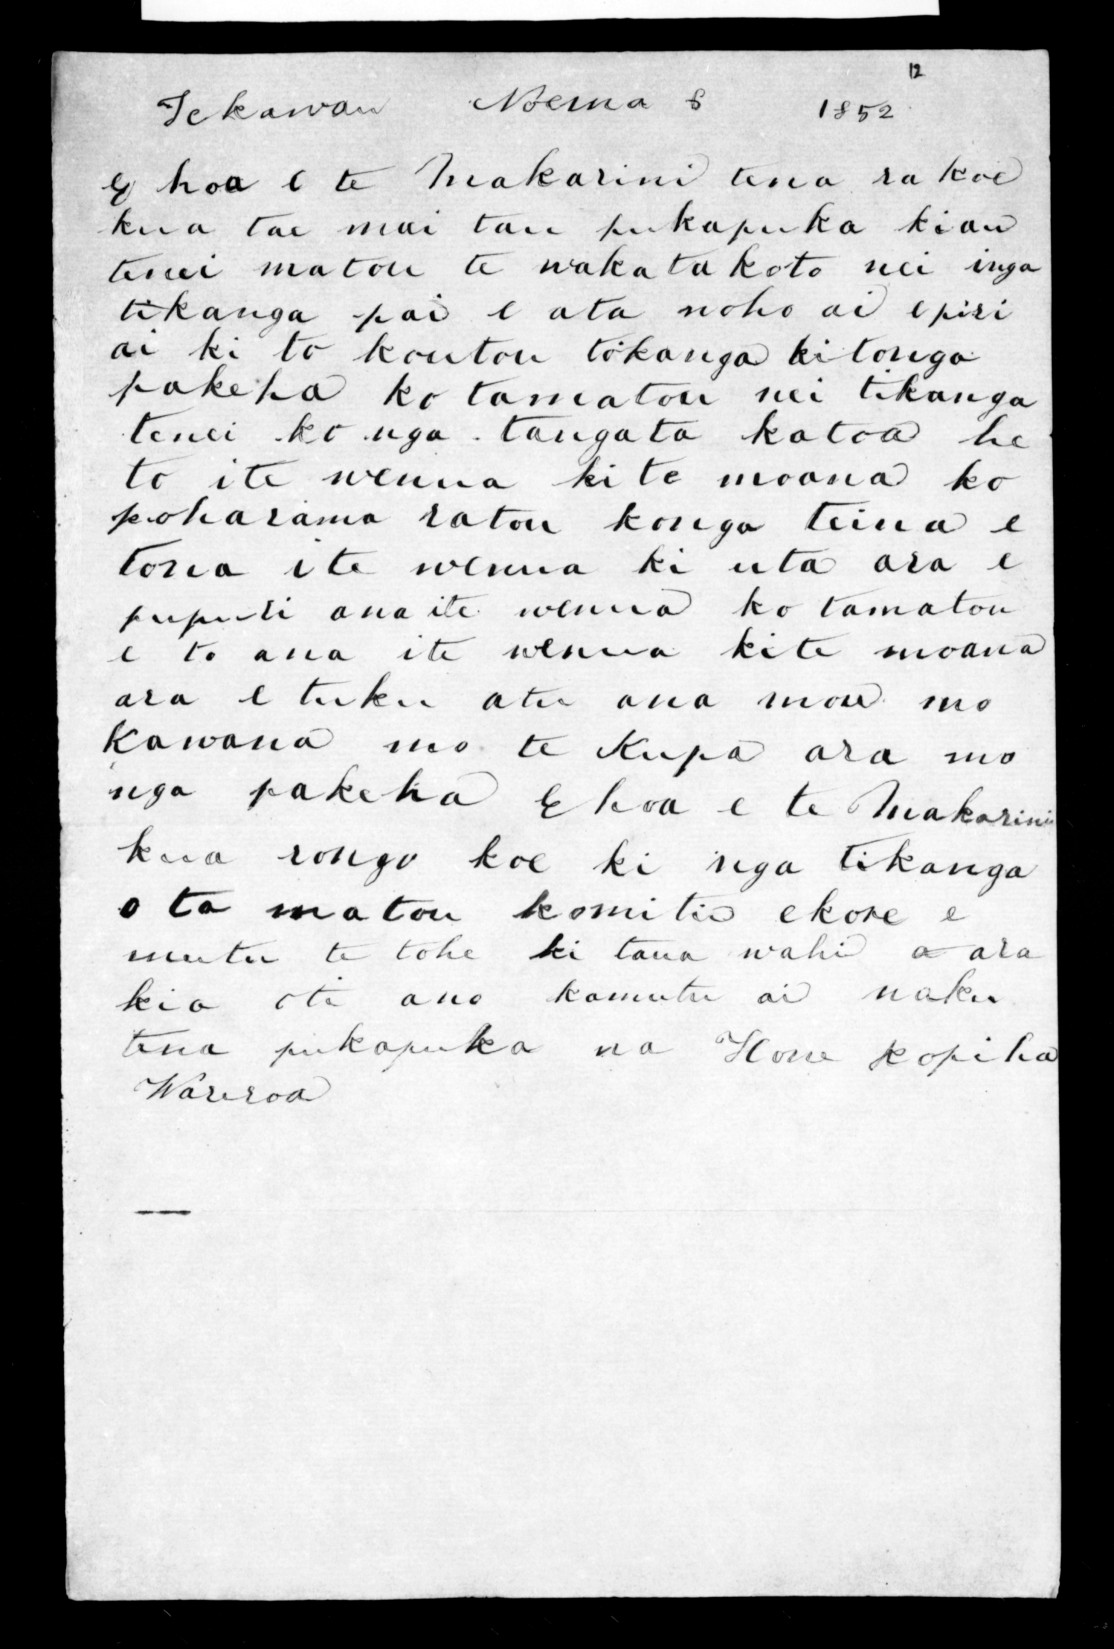 12
Tekawau Noema 8 1852
E hoa e te Makarini tena ra koe
kua tae mai tau pukapuka kiau
tenei matou te wakatakoto nei inga
tikanga pai e ata noho ai epiri
ai ki to koutou tikanga ki tonga
pakeha ko tamatou nei tikanga
tenei ko nga tangata katoa he
to ite wenua ki te moana ko
poharama ratou konga teina e
tona ite wenua ki uta ara e
pupuri ana ite wenua ko tamatou
e to ana ite wenua kite moana
ara e tuku atu ana mou mo
Kawana mo te Kupa ara mo
nga pakeha E hoa e te Makarini
kua rongo koe ki nga tikanga
o ta matou komiti ekore e
mutu te tohe ki taua wahi a ara
kia oti ano kamutu ai naku
tena pukapuka na Hone Kopiha
Wareroa